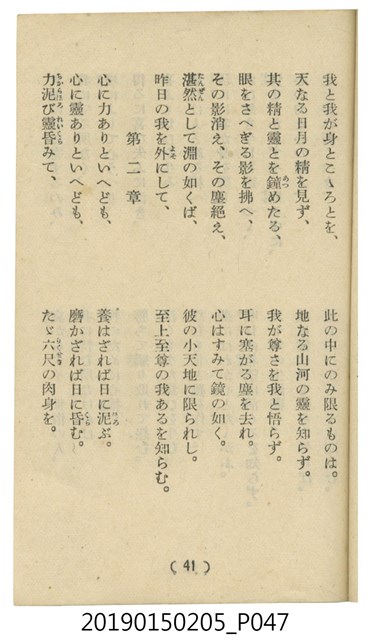 我と我が身とこゝろとを、
此の中にのみ限るものは。
天なる日月の精を見ず、
地なる山河の靈を知らず。
其の精と靈とを鐘めたる、
我が尊さを我と悟らず。
眼をさへぎる影を拂へ、
耳に塞がる塵を去れ。
その影消え、その塵絕え、
心はすみて鏡の如く。
湛然として淵の如くば、
彼の小天地に限られし。
昨日の我を外にして、
至上至尊の我あるを知らむ。
第二章
心に力ありといへども、
養はざれば日に泥ぶ。
心に靈ありといへども、
磨かざれば日に昏む。
力泥び靈昏みて、
たゞ六尺の肉身を。
(41)
20190150205_P047